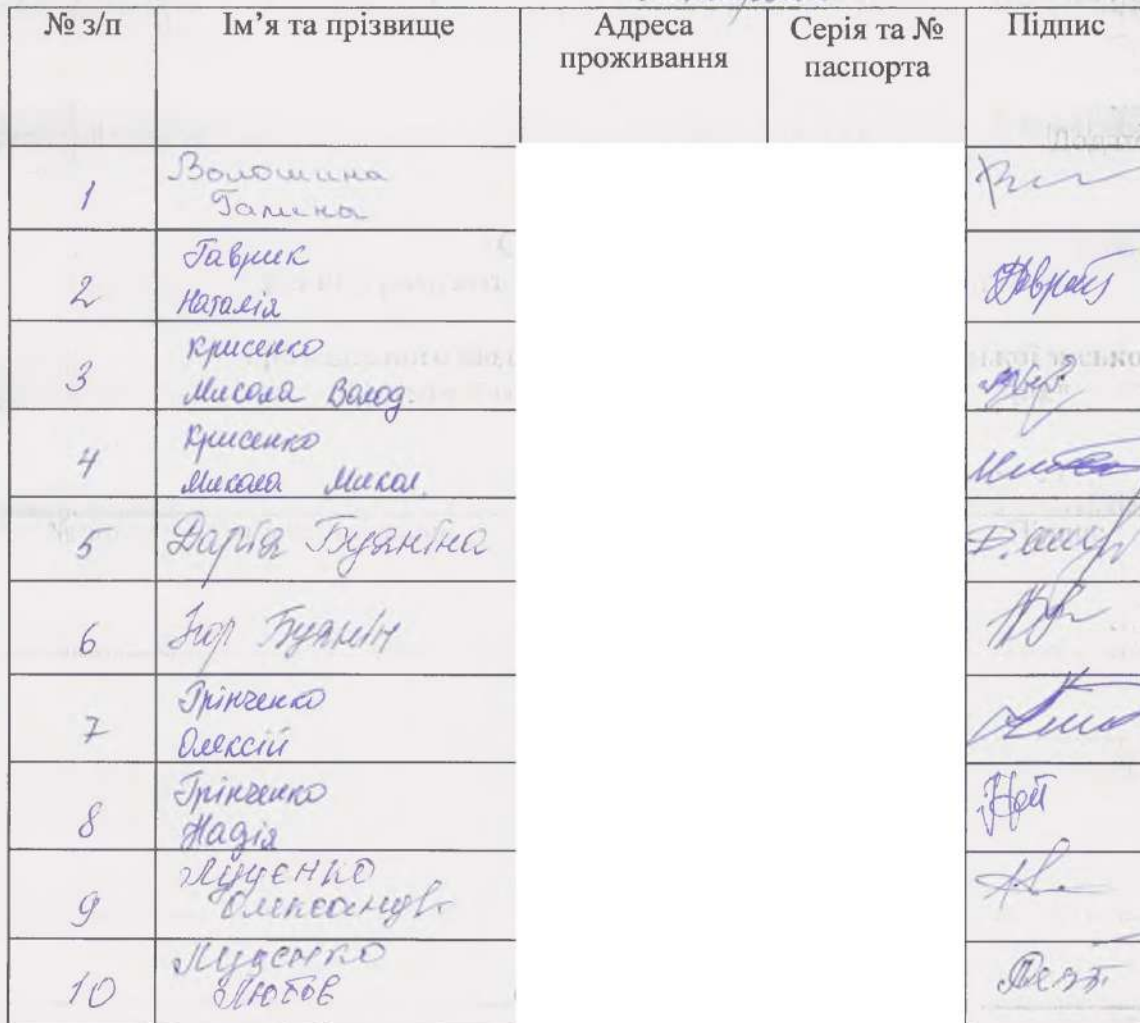 № з/п Ім’я та прізвище Адреса проживання Серія та № паспорта Підпис
1 Волошина
Галина
2 Гаврик
Наталія
3 Крисенко
Микола Волод.
4 Крисенко
Микола Микол.
5 Дарія Буяніна
6 Ігор Буянін
7 Грінченко
Олексій
8 Грінченко
Надія
9 Луценко
Олександр
10 Луценко
Любов